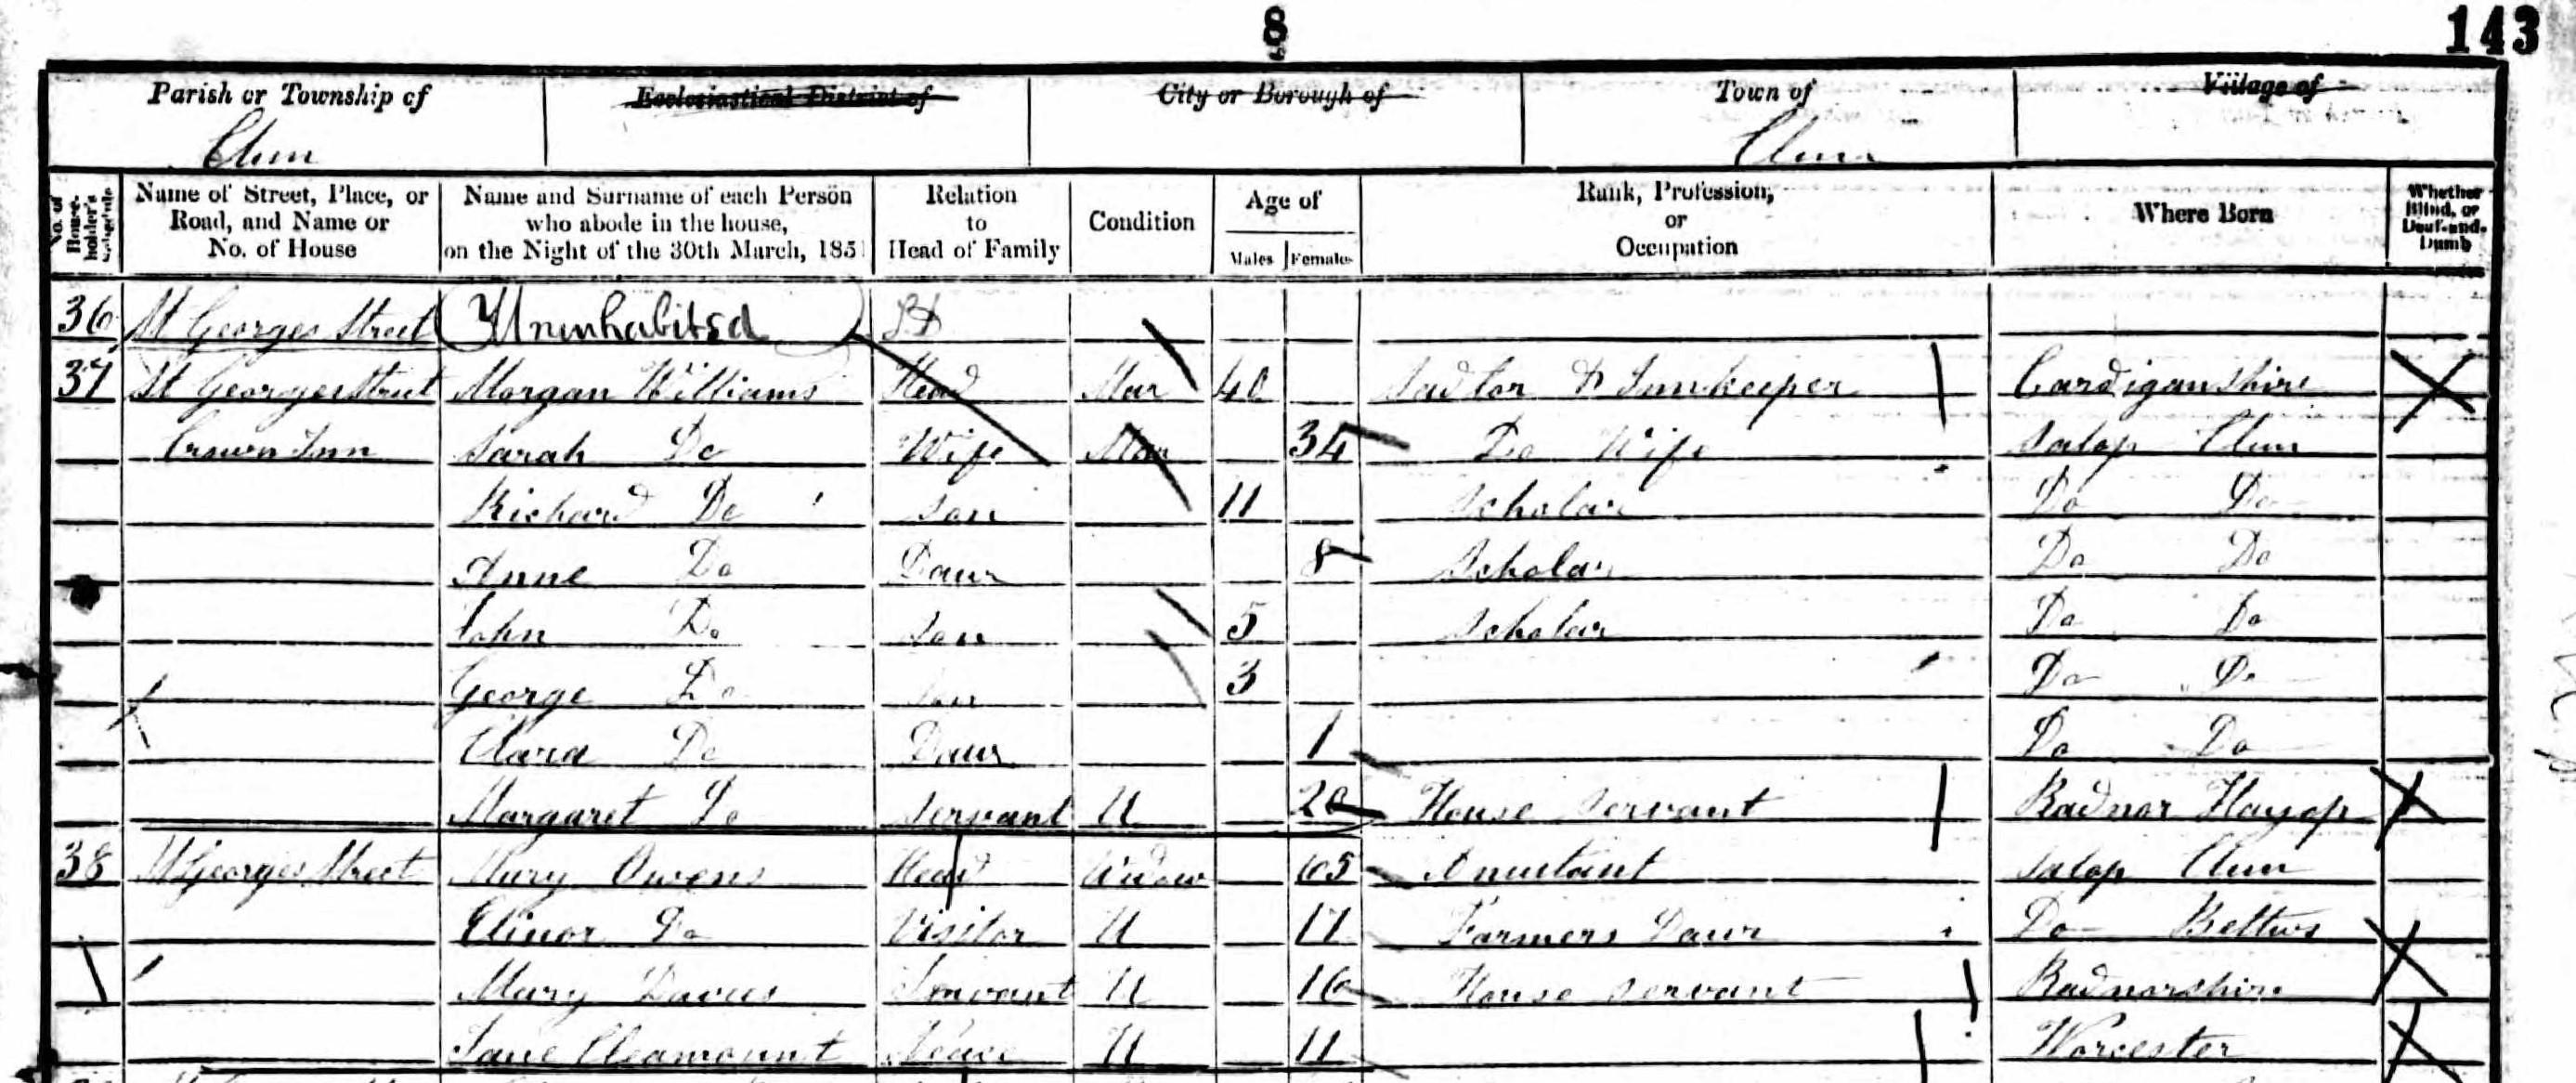 8
143
Parish or Township of Ecclesiastical District of City or Borough of Town of Village of
Clun Clun
No. of House-holder's Schedule Name of Street, Place, or Road, and Name or No. of House Name and Surname of each Person who abode in the house, on the Night of the 30th March, 1851 Relation to Head of Family Condition Age of Males Females Rank, Profession, or Occupation Where Born Whether Blind, or Deaf-and-Dumb
36 St Georges Street Uninhabited
37 St Georges Street Morgan Williams Head Mar 40 Sadlor & Innkeeper Cardiganshire
Crown Inn Sarah Do Wife Mar 34 Do Wife Salop Clun
Richard Do Son 11 Scholar Do Do
Anne Do Daur 8 Scholar Do Do
John Do Son 5 Scholar Do Do
George Do Son 3 Do Do
Clara Do Daur 1 Do Do
Margaret Do Servant U 20 House Servant Radnor
38 St Georges Street Mary Owens Head Widow 65 Anuitant Salop Clun
Elinor Do Visitor U 17 Farmers Daur Do Bettws
Mary Davies Servant U 16 House Servant Radnorshire
Jane Cleamount U 11 Worcester